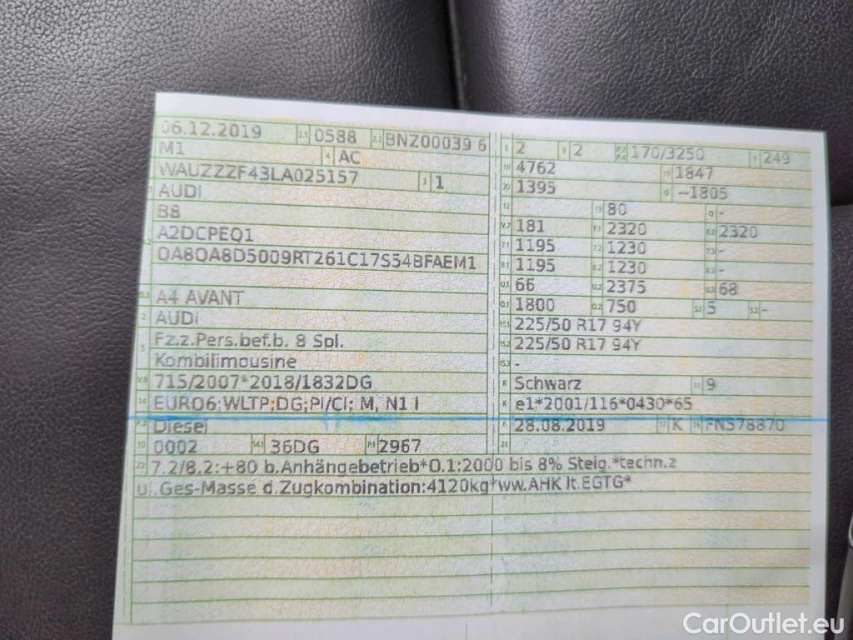 06.12.2019 2.1 0588 2.2 BNZ00039 6
M1 4 AC
WAUZZZF43LA025157 3 1
AUDI
B8
A2DCPEQ1
0A8OA8D5009RT261C17S54BFAEM1
A4 AVANT
AUDI
Fz.z.Pers.bef.b. 8 Spl.
Kombilimousine
715/2007*2018/1832DG
EURO6;WLTP;DG;PI/CI; M, N1 I
Diesel
0002 36DG 2967
2 2 170/3250 249
4762 1847
1395 –1805
80 -
181 2320 2320
1195 1230 -
1195 1230 -
66 2375 68
1800 750 5 -
225/50 R17 94Y
225/50 R17 94Y
-
Schwarz 9
e1*2001/116*0430*65
28.08.2019 K FN578870
7.2/8.2:+80 b.Anhängebetrieb*O.1:2000 bis 8% Steig.*techn.z
ul.Ges-Masse d.Zugkombination:4120kg*ww.AHK lt.EGTG*
CarOutlet.eu